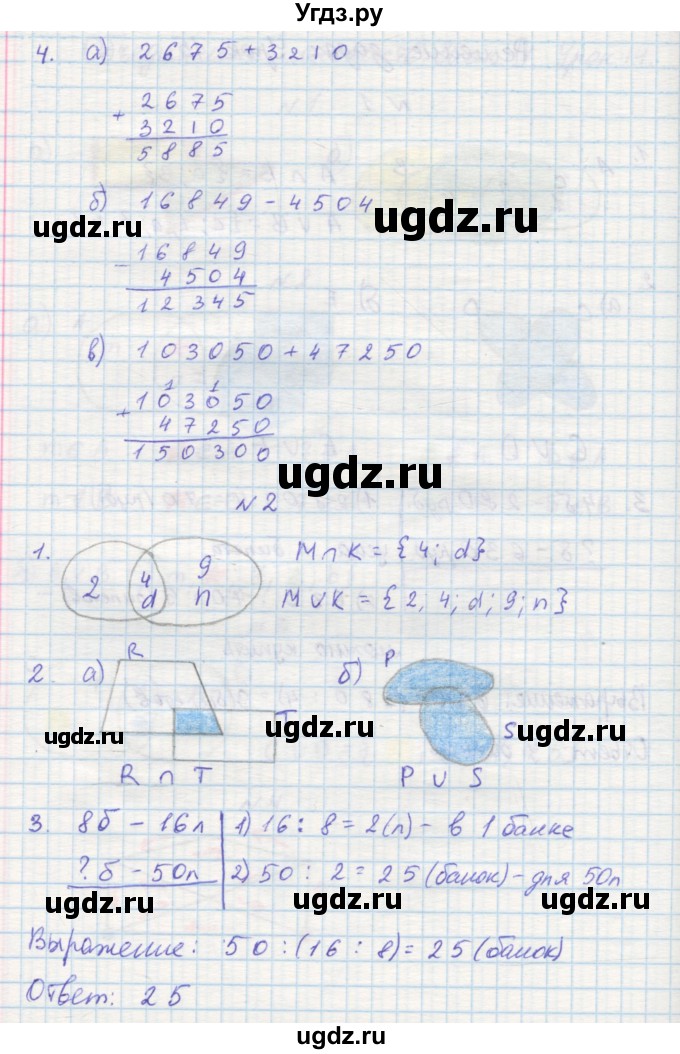 Угдз.ру
4. а) 2675+3210
+ 2675
3210
5885
б) 16849-4504
ugdz.ru ugdz.ru
- 16849
4504
12345
ugdz.ru
в) 103050+47250
1 1
+ 103050
47250
150300
ugdz.ru
N2
1. 2 4 d 9 n M∩K={4; d}
M∪K={2, 4; d; 9; n}
2. а) R T б) P S
ugdz.ru ugdz.ru ugdz.ru
R∩T P∪S
3. 8б - 16л 1) 16 : 8 = 2(л) - в 1 банке
? б - 50л 2) 50 : 2 = 25 (банок) - для 50л
ugdz.ru ugdz.ru
Выражение: 50 : (16 : 8) = 25 (банок)
Ответ: 25
ugdz.ru
ugdz.ru